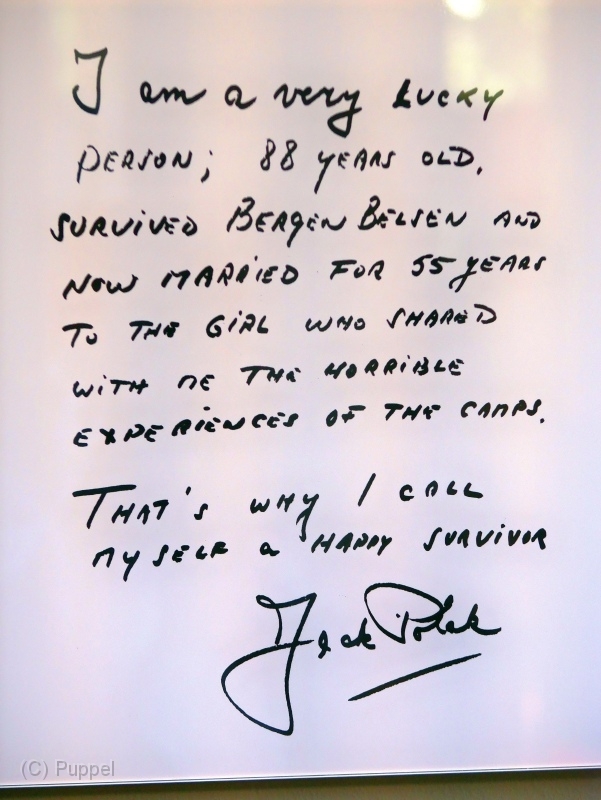 I am a very lucky
person; 88 years old.
survived Bergen Belsen and
now married for 55 years
to the girl who shared
with me the horrible
experiences of the camps.
That's why I call
myself a happy survivor
Jack Polak
(C) Puppel